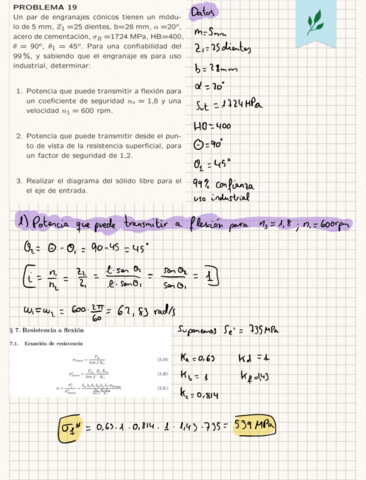 PROBLEMA 19
Un par de engranajes cónicos tienen un módu-
lo de 5 mm, Z₁ =25 dientes, b=28 mm, α =20°,
acero de cementación, σ_R =1724 MPa, HB=400,
θ = 90°, θ₁ = 45°. Para una confiabilidad del
99 %, y sabiendo que el engranaje es para uso
industrial, determinar:
1. Potencia que puede transmitir a flexión para
un coeficiente de seguridad nₑ = 1,8 y una
velocidad n₁ = 600 rpm.
2. Potencia que puede transmitir desde el pun-
to de vista de la resistencia superficial, para
un factor de seguridad de 1,2.
3. Realizar el diagrama del sólido libre para el
el eje de entrada.
Datos
m=5mm
Z₁=25 dientes
b=28mm
α=20°
Sut = 1724 MPa
HB=400
Θ=90°
Θ₁=45°
99% confianza
uso industrial
1) Potencia que puede transmitir a flexión para n₂=1,8, n₁=600rpm
Θ₂ = Θ - Θ₁ = 90-45 = 45°
i = n₁/n₂ = Z₂/Z₁ = = senΘ₂/senΘ₁ = 1
ω₁=ω₂ = 600·2π/60 = 62,83 rad/s
§ 7. Resistencia a flexión
7.1. Ecuación de resistencia
Suponemos Se' = 735 MPa
Ka=0,63 Kd=1
Kb=1
Kc=0,814
= 0,63·1·0,814·1·1,43·735 = 539 MPa